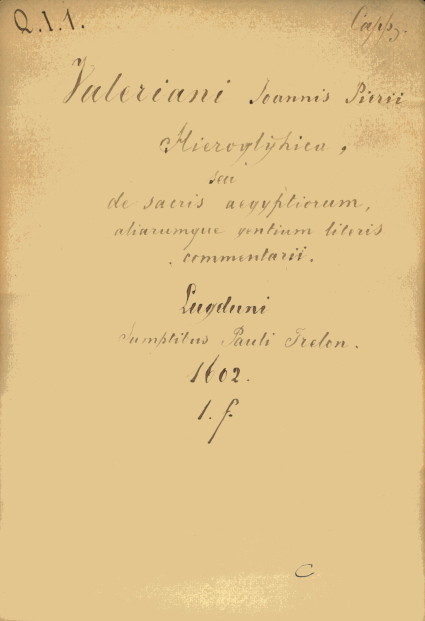 Q.1.1.
Capsz.
Valeriani Joannis Pierii
Hieroglÿhica,
seu
de sacris aegyptiorum,
aliarumque gentium literis
commentarii.
Lugduni
Sumptibus Pauli Frelon.
1602.
1. f.
C